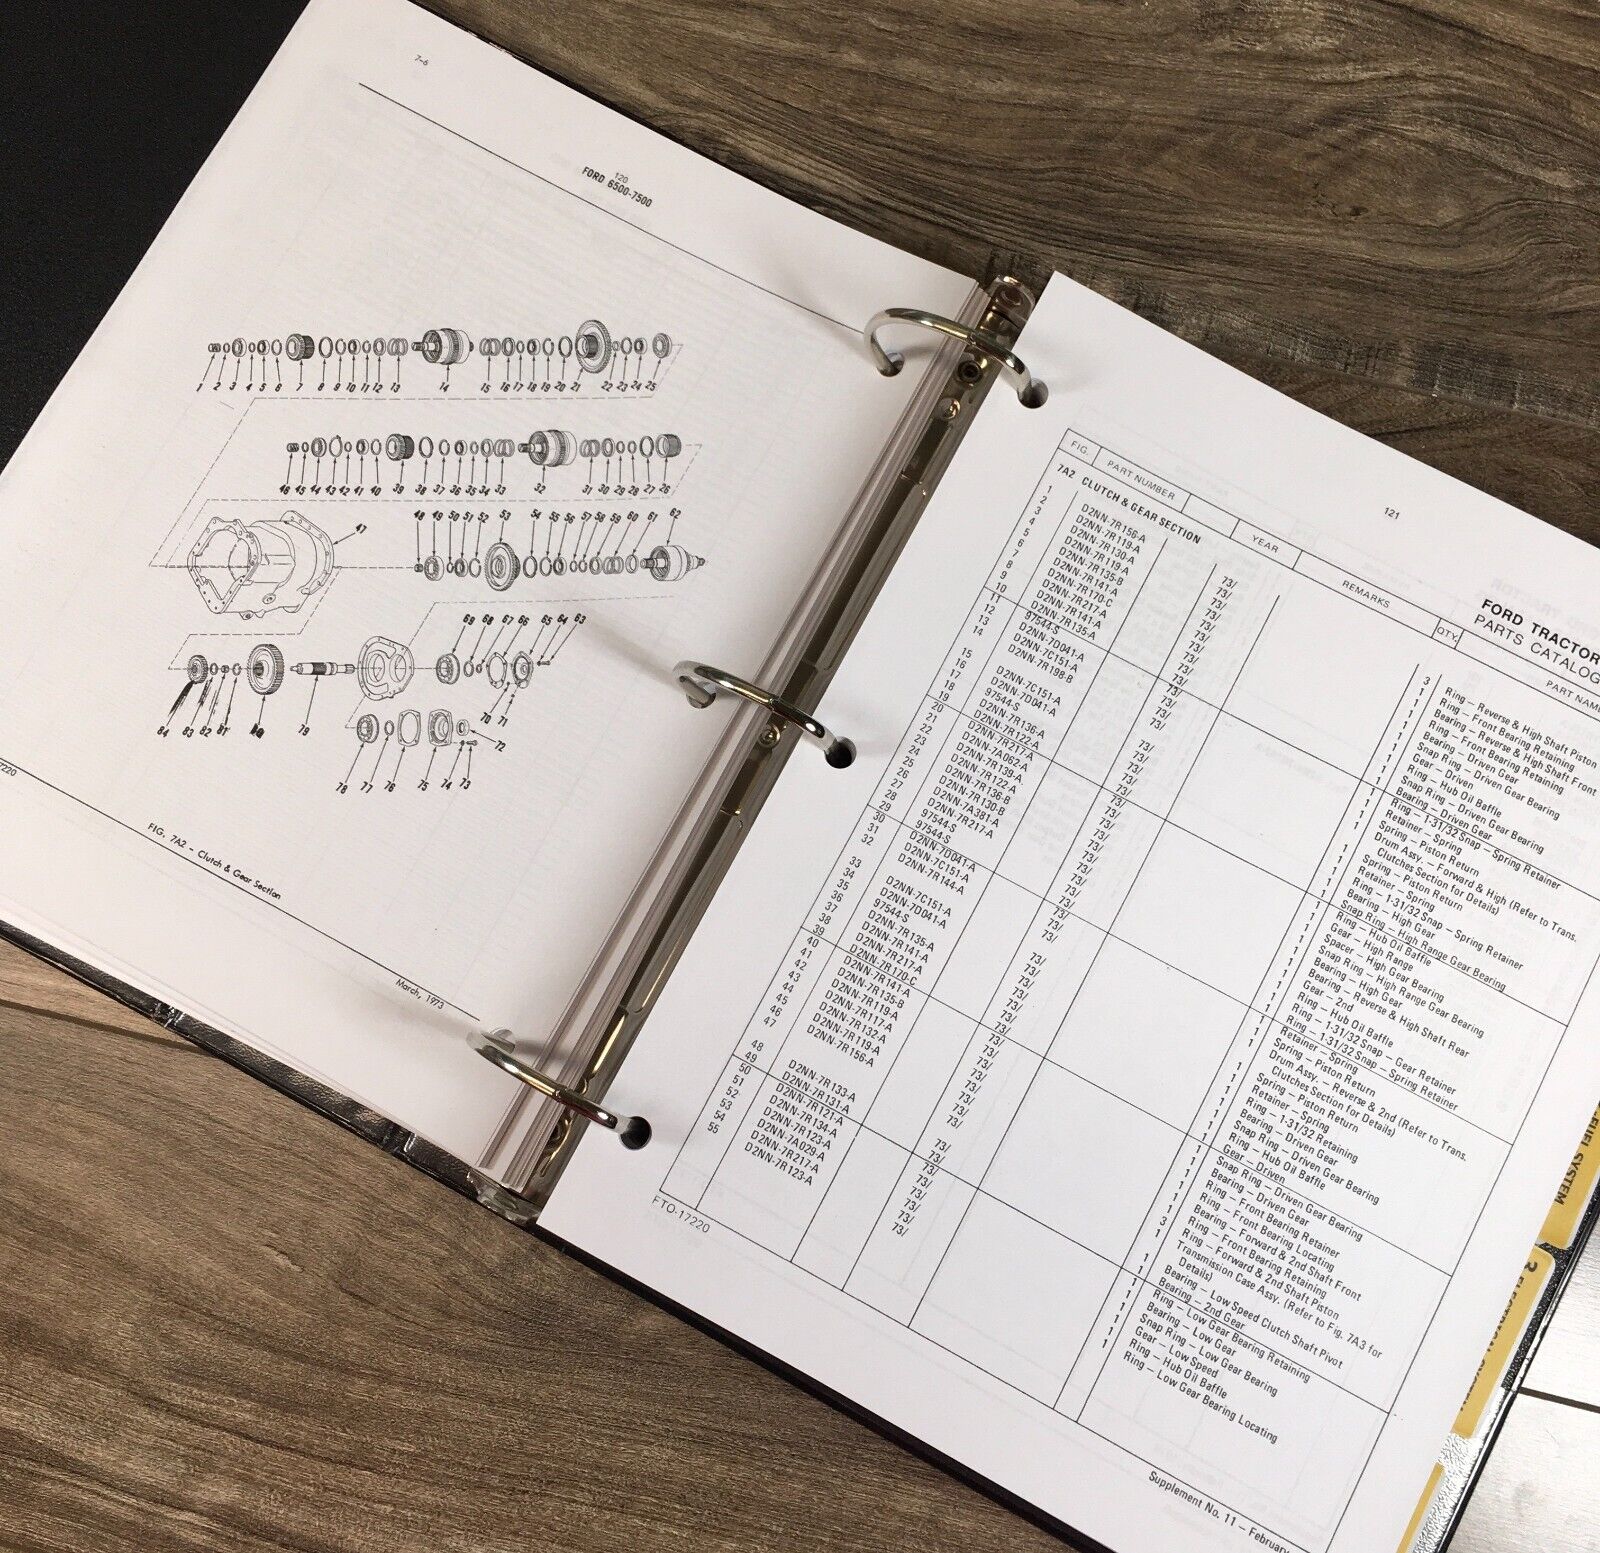 7-6
120
FORD 6500-7500
1 2 3 4 5 6 7 8 9 10 11 12 13 14 15 16 17 18 19 20 21 22 23 24 25
46 45 44 43 42 41 40 39 38 37 36 35 34 33 32 31 30 29 28 27 26
47 48 49 50 51 52 53 54 55 56 57 58 59 60 61 62
69 68 67 66 65 64 63
84 83 82 81 80 79 70 71 72
78 77 76 75 74 73
17220
FIG. 7A2 – Clutch & Gear Section
March, 1973
121
FORD TRACTOR
PARTS CATALOG
FIG. PART NUMBER YEAR REMARKS QTY. PART NAME
7A2 CLUTCH & GEAR SECTION
1 D2NN-7R156-A 73/ 3 Ring – Reverse & High Shaft Piston
2 D2NN-7R119-A 73/ 1 Ring – Front Bearing Retaining
3 D2NN-7R130-A 73/ 1 Bearing – Reverse & High Shaft Front
4 D2NN-7R119-A 73/ 1 Ring – Front Bearing Retaining
5 D2NN-7R135-B 73/ 1 Bearing – Driven Gear
6 D2NN-7R141-A 73/ 1 Snap Ring – Driven Gear Bearing
7 D2NN-7R170-C 73/ 1 Gear – Driven
8 D2NN-7R217-A 73/ 1 Ring – Hub Oil Baffle
9 D2NN-7R141-A 73/ 1 Snap Ring – Driven Gear Bearing
10 D2NN-7R135-A 73/ 1 Bearing – Driven Gear
11 97544-S 73/ 1 Ring – 1-31/32 Snap – Spring Retainer
12 D2NN-7D041-A 73/ 1 Retainer – Spring
13 D2NN-7C151-A 73/ 1 Spring – Piston Return
14 D2NN-7R198-B 73/ 1 Drum Assy. – Forward & High (Refer to Trans.
Clutches Section for Details)
15 D2NN-7C151-A 73/ 1 Spring – Piston Return
16 D2NN-7D041-A 73/ 1 Retainer – Spring
17 97544-S 73/ 1 Ring – 1-31/32 Snap – Spring Retainer
18 D2NN-7R136-A 73/ 1 Bearing – High Gear
19 D2NN-7R122-A 73/ 1 Snap Ring – High Range Gear Bearing
20 D2NN-7R217-A 73/ 1 Ring – Hub Oil Baffle
21 D2NN-7A062-A 73/ 1 Gear – High Range
22 D2NN-7R139-A 73/ 1 Spacer – High Gear Bearing
23 D2NN-7R122-A 73/ 1 Snap Ring – High Range Gear Bearing
24 D2NN-7R136-B 73/ 1 Bearing – High Gear
25 D2NN-7R130-B 73/ 1 Bearing – Reverse & High Shaft Rear
26 D2NN-7A381-A 73/ 1 Gear – 2nd
27 D2NN-7R217-A 73/ 1 Ring – Hub Oil Baffle
28 97544-S 73/ 1 Ring – 1-31/32 Snap – Gear Retainer
29 97544-S 73/ 1 Ring – 1-31/32 Snap – Spring Retainer
30 D2NN-7D041-A 73/ 1 Retainer – Spring
31 D2NN-7C151-A 73/ 1 Spring – Piston Return
32 D2NN-7R144-A 73/ 1 Drum Assy. – Reverse & 2nd (Refer to Trans.
Clutches Section for Details)
33 D2NN-7C151-A 73/ 1 Spring – Piston Return
34 D2NN-7D041-A 73/ 1 Retainer – Spring
35 97544-S 73/ 1 Ring – 1-31/32 Retaining
36 D2NN-7R135-A 73/ 1 Bearing – Driven Gear
37 D2NN-7R141-A 73/ 1 Snap Ring – Driven Gear Bearing
38 D2NN-7R217-A 73/ 1 Ring – Hub Oil Baffle
39 D2NN-7R170-C 73/ 1 Gear – Driven
40 D2NN-7R141-A 73/ 1 Snap Ring – Driven Gear Bearing
41 D2NN-7R135-B 73/ 1 Bearing – Driven Gear
42 D2NN-7R119-A 73/ 1 Ring – Front Bearing Retainer
43 D2NN-7R117-A 73/ 1 Ring – Front Bearing Locating
44 D2NN-7R132-A 73/ 1 Bearing – Forward & 2nd Shaft Front
45 D2NN-7R119-A 73/ 1 Ring – Front Bearing Retaining
46 D2NN-7R156-A 73/ 3 Ring – Forward & 2nd Shaft Piston
47 1 Transmission Case Assy. (Refer to Fig. 7A3 for
Details)
48 D2NN-7R133-A 73/ 1 Bearing – Low Speed Clutch Shaft Pivot
49 D2NN-7R131-A 73/ 1 Bearing – 2nd Gear
50 D2NN-7R121-A 73/ 1 Ring – Low Gear Bearing Retaining
51 D2NN-7R134-A 73/ 1 Bearing – Low Gear
52 D2NN-7R123-A 73/ 1 Snap Ring – Low Gear Bearing
53 D2NN-7A029-A 73/ 1 Gear – Low Speed
54 D2NN-7R217-A 73/ 1 Ring – Hub Oil Baffle
55 D2NN-7R123-A 73/ 1 Ring – Low Gear Bearing Locating
FTO-17220
Supplement No. 11 – February
FUEL SYSTEM